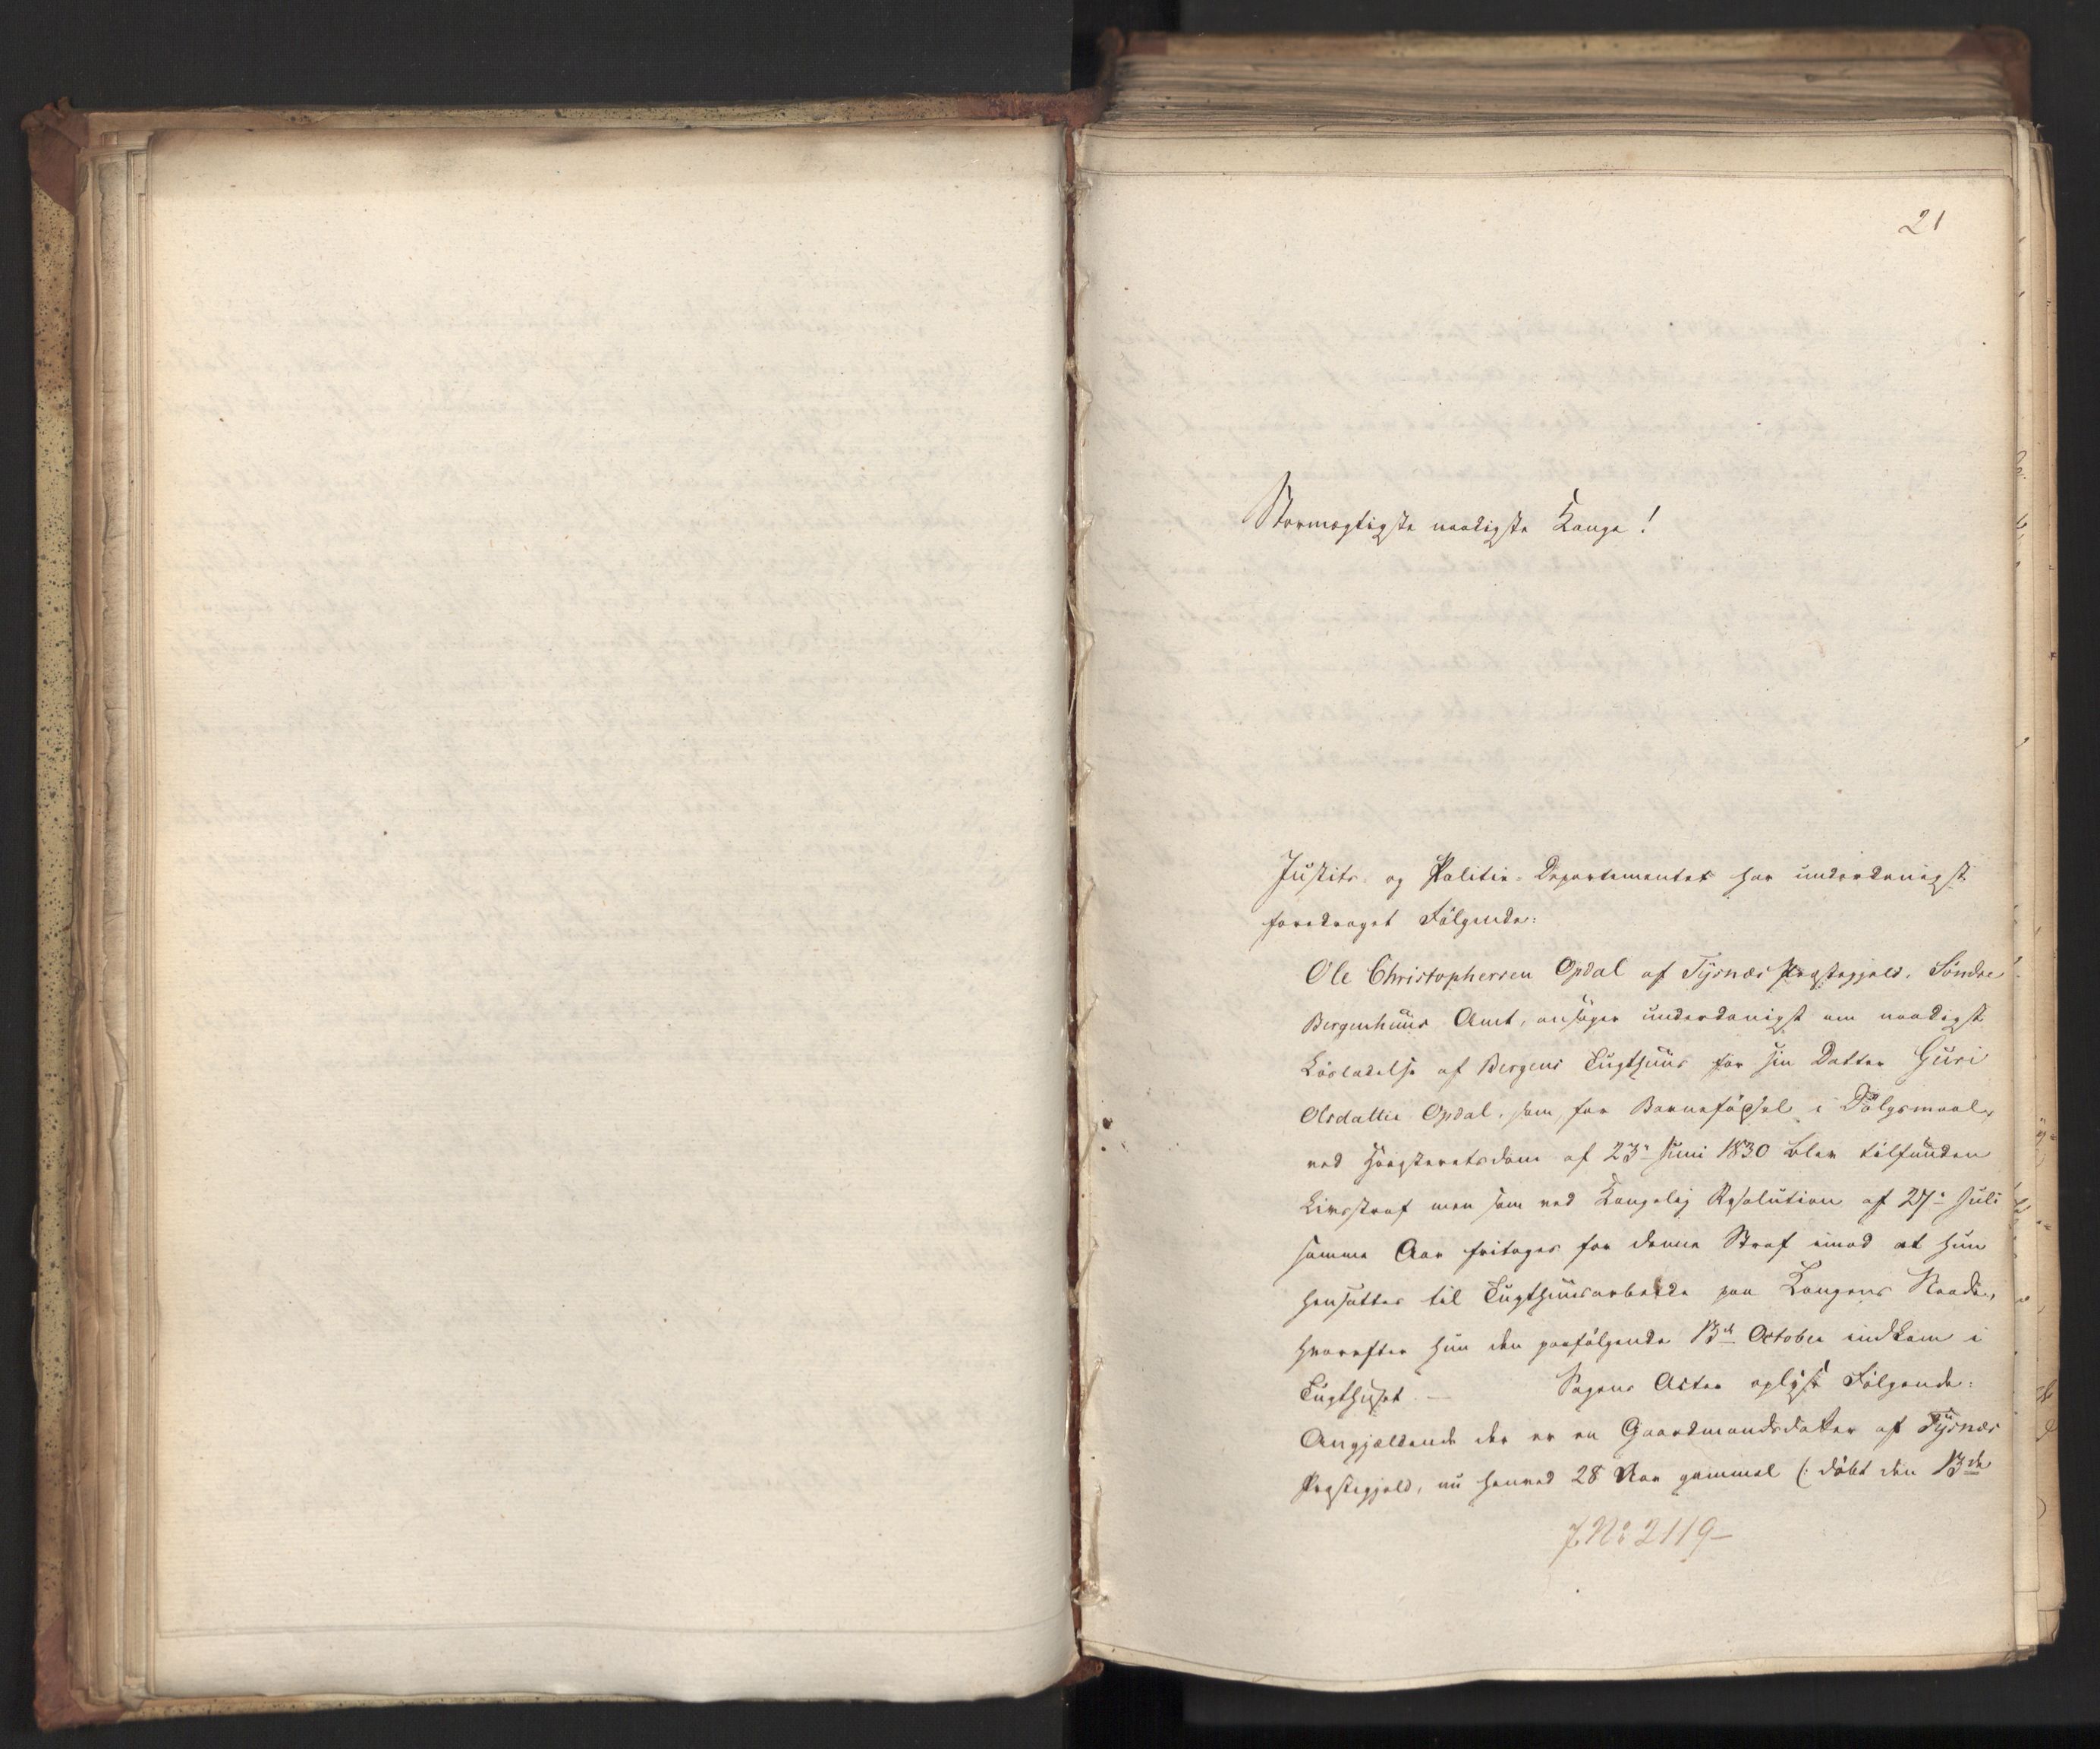 21
Stormægtigste naadigste Konge!
Justits- og Politie-Departementet har underdanigst
foredraget Følgende:
Ole Christophersen Opdal af Tysnæs Præstegjeld, Søndre
Bergenhuus Amt, ansøger underdanigst om naadigst
Løsladelse af Bergens Tugthuus for sin Datter Guri
Olsdatter Opdal, som, for Barnefødsel i Dølgsmaal,
ved Høiesteretsdom af 23de Juni 1830 blev tilfunden
Livsstraf men som ved Kongelig Resolution af 27de Juli
samme Aar fritoges for denne Straf imod at hun
hensattes til Tugthuusarbeide paa Kongens Naade,
hvorefter hun den paafølgende 13de October indkom i
Tugthuset. — Sagens Acter oplyse Følgende:
Angjældende der er en Gaardmandsdatter af Tysnæs
Præstegjeld, nu henved 28 Aar gammel (: døbt den 13de
J. No 2119—